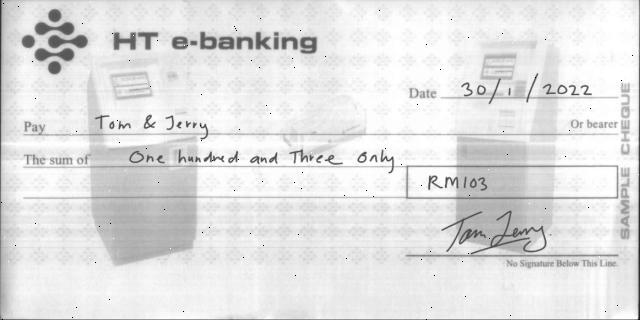 HT e-banking
Date 30/1/2022
Pay Tom & Jerry Or bearer
The sum of One hundred and Three Only
RM103
Tom Jerry
No Signature Below This Line.
SAMPLE CHEQUE